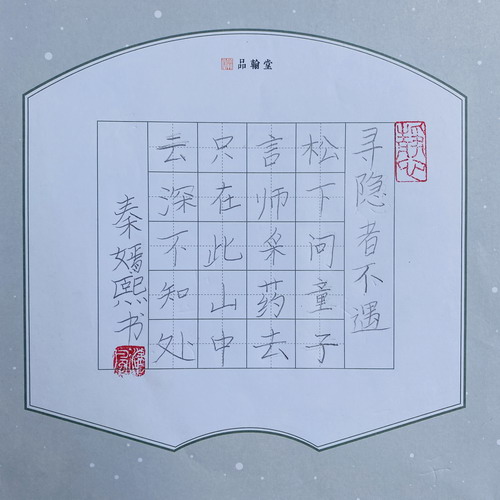 品翰堂
静心
寻隐者不遇
松下问童子
言师采药去
只在此山中
云深不知处
秦嫣熙书